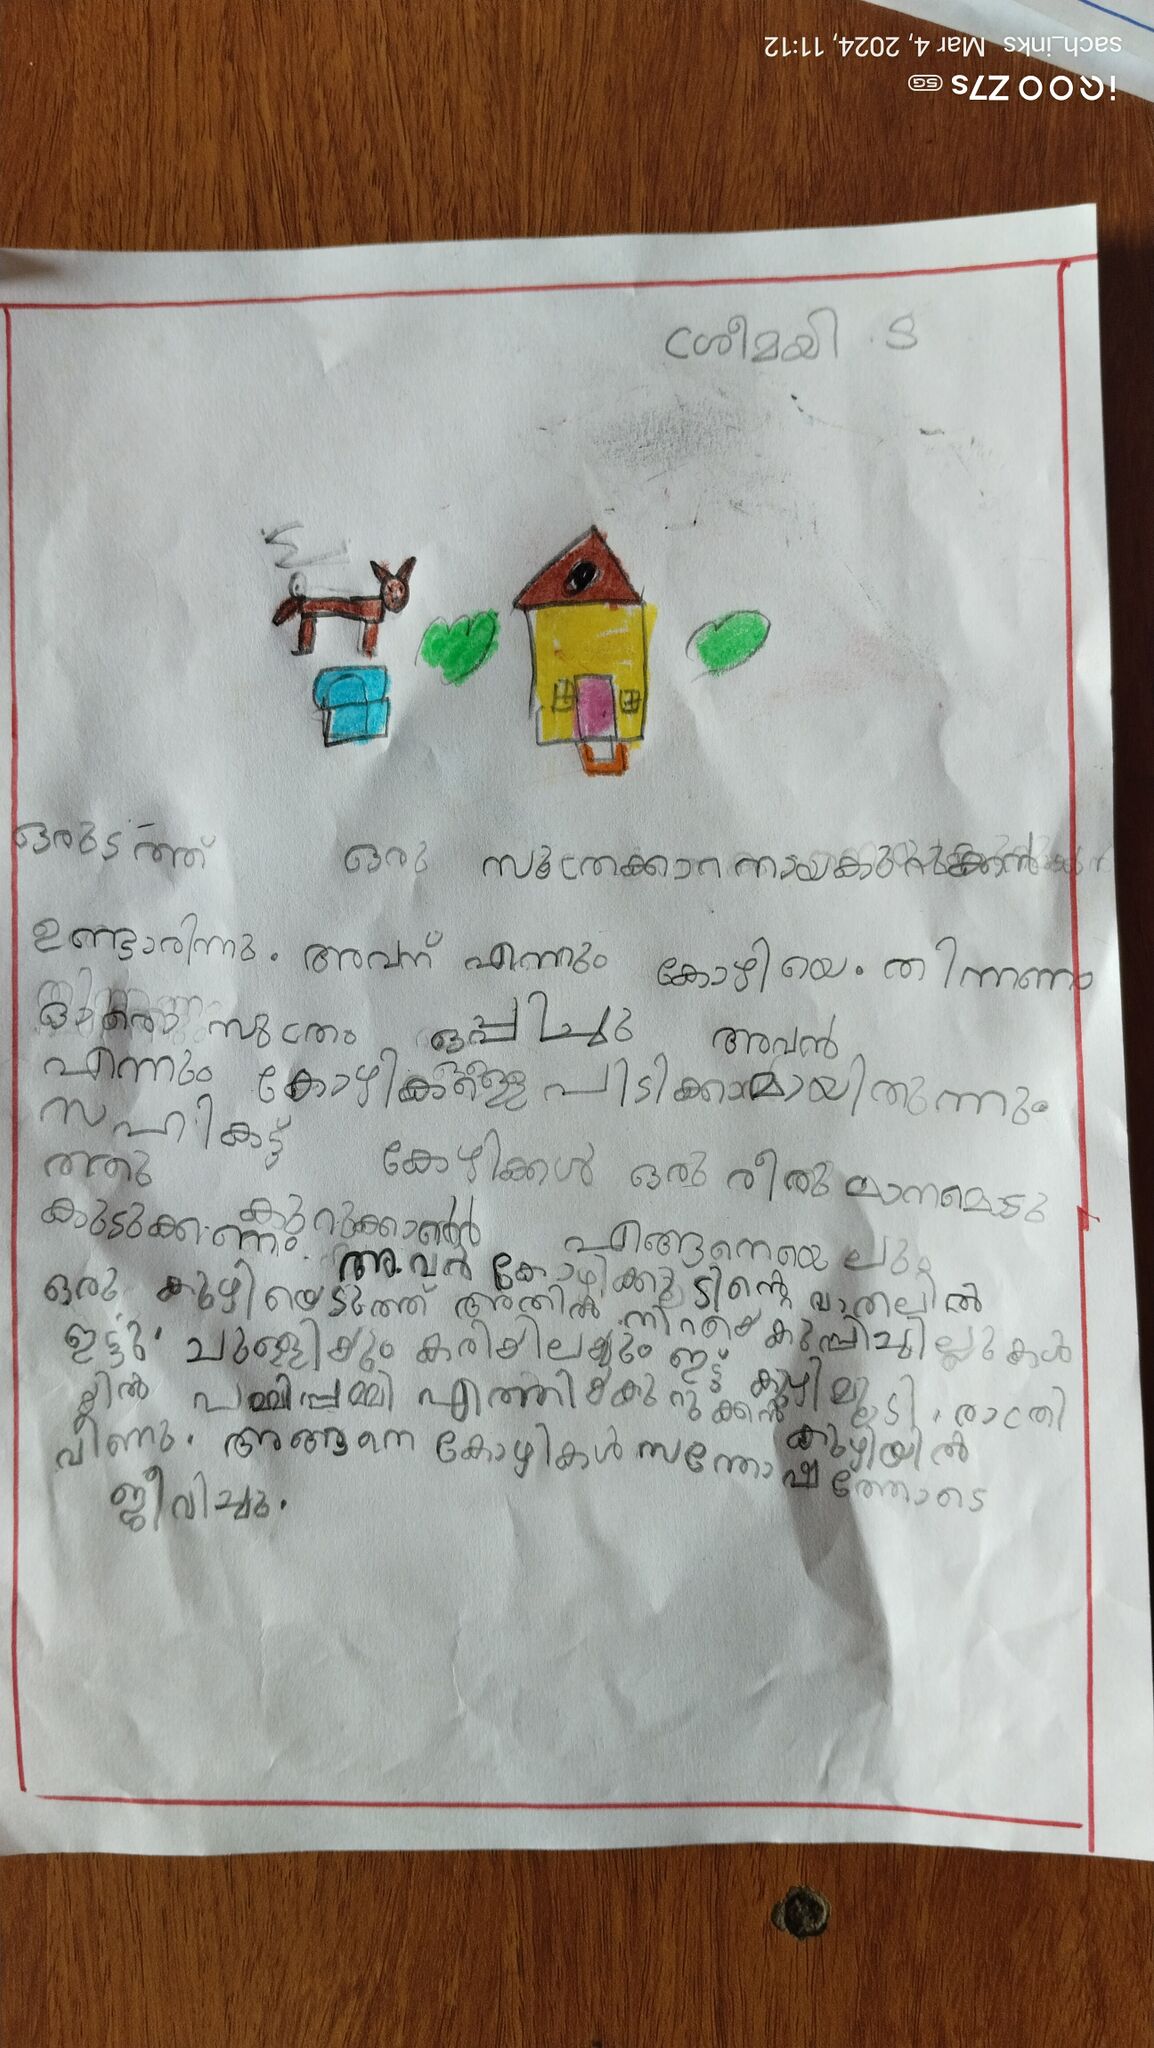 sach_inks Mar 4, 2024, 11:12
iQOO Z7s 5G
ശ്രീമയി . S
ഒരുടത്ത് ഒരു സൂത്രക്കാറനായകുറുക്കൻ
ഉണ്ടാരിന്നു. അവന് എന്നും കോഴിയെ. തിന്നണം
സുത്രം ഒപ്പിച്ചു അവൻ
എന്നും കോഴികളെ പിടിക്കാമായിരുന്നും.
സഹികട്ട് കോഴിക്കൾ ഒരു തീരുമാനമെടു
ത്തു കുറുക്കാൻ എങ്ങനെയെലും
കുടുക്കണം. അവൻ കോഴിക്കുടിന്റെ വാതലിൽ
ഒരു കുഴിയെടുത്ത് അതിൽ നിറയെ കുപ്പിച്ചില്ലുകൾ
ഇട്ടു. ചുള്ളിയും കരിയിലയും ഇട്ട് കുഴി മുടി. രാത്രി
യിൽ പമ്മിപ്പമ്മി എത്തിയകുറുക്കൻ കുഴിയിൽ
വീണു. അങ്ങനെ കോഴികൾ സന്തോഷത്തോടെ
ജീവിച്ചു.